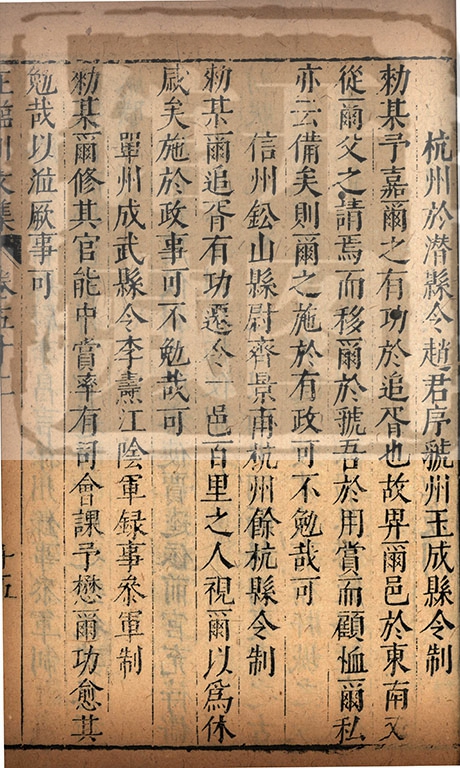 杭州於潛縣令趙君序虢州玉成縣令制
勑某予嘉爾之有功於追胥也故畀爾邑於東南又
從爾父之請焉而移爾於虢吾於用賞而顧恤爾私
亦云備矣則爾之施於有政可不勉哉可
信州鈆山縣尉齊景甫杭州餘杭縣令制
勑某爾追胥有功遷令一邑百里之人視爾以爲休
戚矣施於政事可不勉哉可
單州成武縣令李燾江陰軍録事參軍制
勑某爾修其官能中賞率有司會課予懋爾功愈其
勉哉以涖厥事可
王臨川文集 卷五十二 十五